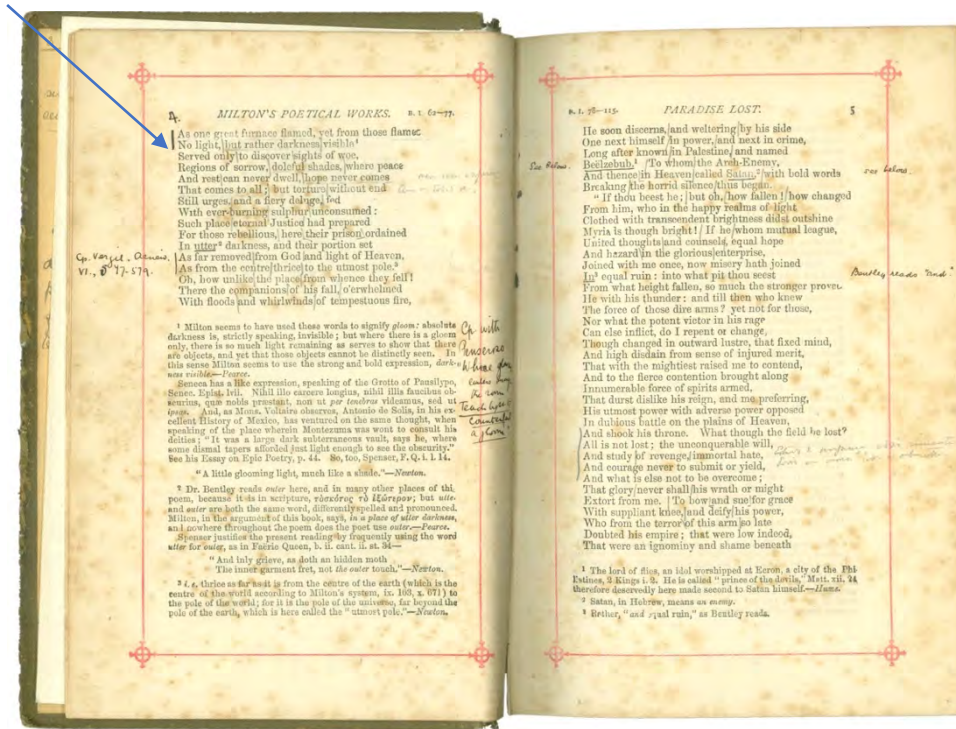 4 MILTON'S POETICAL WORKS. B. I. 62—77.
As one great furnace flamed, yet from those flames
No light, but rather darkness visible¹
Served only to discover sights of woe,
Regions of sorrow, doleful shades, where peace
And rest can never dwell, hope never comes
That comes to all; but torture without end
Still urges, and a fiery deluge, fed
With ever-burning sulphur unconsumed:
Such place eternal Justice had prepared
For those rebellious, here their prison ordained
In utter² darkness, and their portion set
Cp. Vergil. Aeneis. VI., 577-579.
As far removed from God and light of Heaven,
As from the centre thrice to the utmost pole.³
Oh, how unlike the place from whence they fell!
There the companions of his fall, o'erwhelmed
With floods and whirlwinds of tempestuous fire,
¹ Milton seems to have used these words to signify gloom: absolute
darkness is, strictly speaking, invisible; but where there is a gloom
only, there is so much light remaining as serves to show that there
are objects, and yet that those objects cannot be distinctly seen. In
this sense Milton seems to use the strong and bold expression, dark-
ness visible.—Pearce.
Seneca has a like expression, speaking of the Grotto of Pausilypo,
Senec. Epist. lvii. Nihil illo carcere longius, nihil illis faucibus ob-
scurius, quæ nobis præstant, non ut per tenebras videamus, sed ut
ipsas. And, as Mons. Voltaire observes, Antonio de Solis, in his ex-
cellent History of Mexico, has ventured on the same thought, when
speaking of the place wherein Montezuma was wont to consult his
deities; "It was a large dark subterraneous vault, says he, where
some dismal tapers afforded just light enough to see the obscurity."
See his Essay on Epic Poetry, p. 44. So, too, Spenser, F. Q. i. 1. 14.
"A little glooming light, much like a shade."—Newton.
² Dr. Bentley reads outer here, and in many other places of thi.
poem, because it is in scripture, τὸ σκότος τὸ ἐξώτερον; but utter
and outer are both the same word, differently spelled and pronounced.
Milton, in the argument of this book, says, in a place of utter darkness,
and nowhere throughout the poem does the poet use outer.—Pearce.
Spenser justifies the present reading by frequently using the word
utter for outer, as in Faërie Queen, b. ii. cant. ii. st. 34—
"And inly grieve, as doth an hidden moth
The inner garment fret, not the outer touch."—Newton.
³ i. e. thrice as far as it is from the centre of the earth (which is the
centre of the world according to Milton's system, ix. 103, x. 671) to
the pole of the world; for it is the pole of the universe, far beyond the
pole of the earth, which is here called the "utmost pole."—Newton.
Cp. with
Penseroso
Where glowing
embers through
the room
Teach light to
Counterfeit
a gloom
B. I. 78—115. PARADISE LOST. 5
He soon discerns, and weltering by his side
One next himself in power, and next in crime,
Long after known in Palestine, and named
See below. Beëlzebub.¹ To whom the Arch-Enemy,
And thence in Heaven called Satan,² with bold words see below.
Breaking the horrid silence thus began.
"If thou beest he; but oh, how fallen! how changed
From him, who in the happy realms of light
Clothed with transcendent brightness didst outshine
Myriads though bright! If he whom mutual league,
United thoughts and counsels, equal hope
And hazard in the glorious enterprise,
Joined with me once, now misery hath joined
In³ equal ruin: into what pit thou seest Bentley reads "and"
From what height fallen, so much the stronger proved
He with his thunder: and till then who knew
The force of those dire arms? yet not for those,
Nor what the potent victor in his rage
Can else inflict, do I repent or change,
Though changed in outward lustre, that fixed mind,
And high disdain from sense of injured merit,
That with the mightiest raised me to contend,
And to the fierce contention brought along
Innumerable force of spirits armed,
That durst dislike his reign, and me preferring,
His utmost power with adverse power opposed
In dubious battle on the plains of Heaven,
And shook his throne. What though the field be lost?
All is not lost; the unconquerable will,
And study of revenge, immortal hate,
And courage never to submit or yield,
And what is else not to be overcome;
That glory never shall his wrath or might
Extort from me. To bow and sue for grace
With suppliant knee, and deify his power,
Who from the terror of this arm so late
Doubted his empire; that were low indeed,
That were an ignominy and shame beneath
¹ The lord of flies, an idol worshipped at Ecron, a city of the Phi-
listines, 2 Kings i. 2. He is called "prince of the devils," Matt. xii. 24,
therefore deservedly here made second to Satan himself.—Hume.
² Satan, in Hebrew, means an enemy.
³ Erther, "and equal ruin," as Bentley reads.